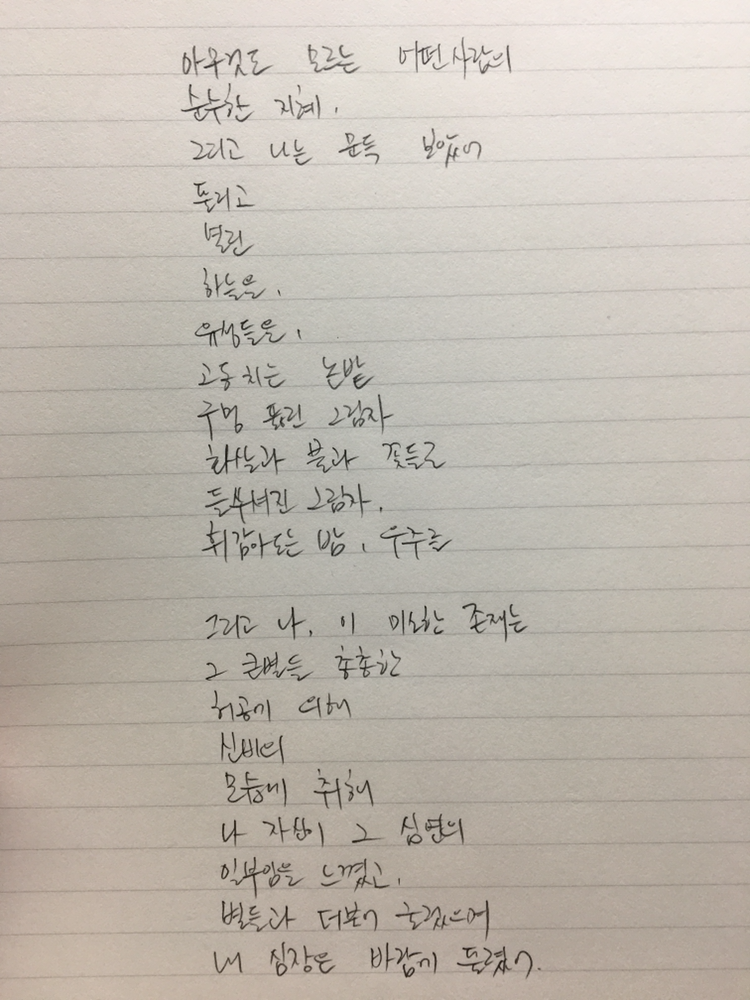 아무것도 모르는 어떤사람의
순수한 지혜.
그리고 나는 문득 보았어
풀리고
열린
하늘을,
유성들을,
고동치는 논밭
구멍 뚫린 그림자
화살과 불과 꽃들로
들쑤셔진 그림자,
휘감아도는 밤, 우주를

그리고 나, 이 미소한 존재는
그 큰별들 총총한
허공에 의해
신비의
모습에 취해
나 자신이 그 심연의
일부임을 느꼈고,
별들과 더불어 굴렀으며
내 심장은 바람에 풀렸어.